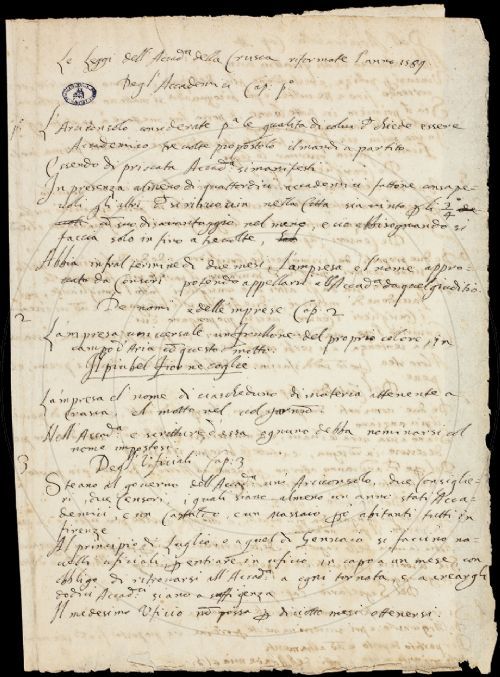 Le Leggi dell'Accad.ª della Crusca riformate l'anno 1589
Degl'Accademici Cap. p.º
L'Arciconsolo considerate p.ª le qualità di colui che chiede essere
Accademico tre volte propostolo il mandi a partito
Essendo di priscata Accad.ª si manifesti
In presenza almeno di quattordici accademici fattone consape-
voli gli altri che si ritruovin nella Città sia vinto per li 3/4
suo disavantaggio nel meno, e ciò bisognando si
faccia solo in fino a tre volte,
Abbia infra 'l termine di due mesi l'impresa e 'l nome appro-
vato da Censori potendo appellarsi all'Accad.ª da quel giuditio
De nomi e delle imprese Cap. 2
2
L'impresa universale un Frullone del proprio colore, in
campo d'Aria con questo motto
Il più bel fior ne coglie
L'impresa e 'l nome di ciascheduno di materia attenente a
Crusca e 'l motto nel volgarmo
Nell'Accad.ª e scritture d'essa ognuno debba nominarsi col
nome impostosi
Degl'Uficiali Cap. 3
3
Steano al governo dell'Accad.ª un'Arciconsolo, due Consiglie-
ri, due Censori, i quali siano almeno un anno stati Acca-
demici, e un Castaldo, e un Massaio, per abitanti tutti in
firenze
Al principio di Luglio, e a quel di Gennaio si faccino no-
velli uficiali per entrare in uficio, in capo a un mese con
obbligo di ritrovarsi all'Accad.ª a ogni tornata, e a crear gli
dodici Accad.ci siano a sufficienza
Il medesimo Uficio non possa per diciotto mesi ottenersi.